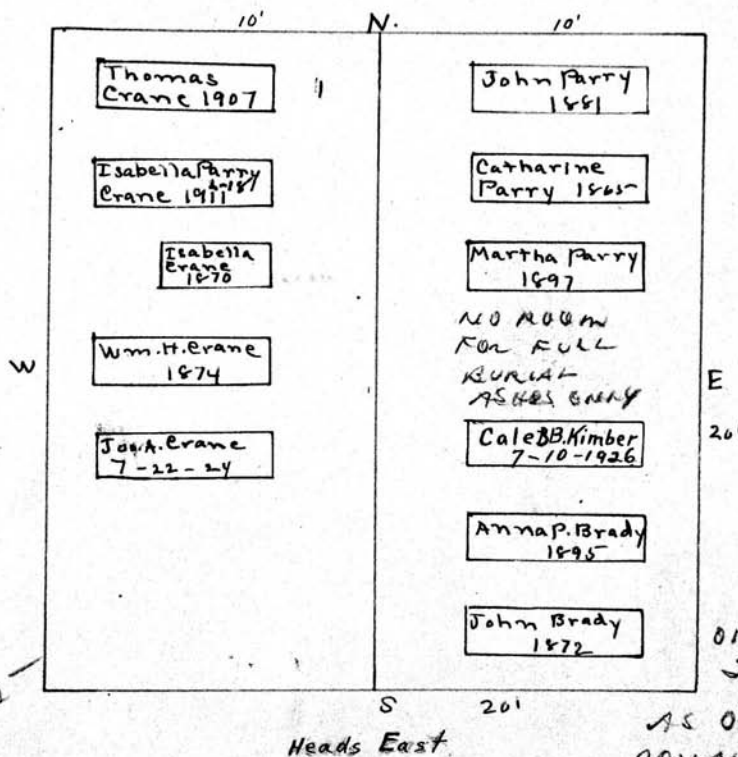 10'
N.
10'
Thomas
Crane 1907
Isabella Parry
Crane 1911
Isabella
Crane
1870
Wm. H. Crane
1874
Jos. A. Crane
7-22-24
John Parry
1881
Catharine
Parry 1865
Martha Parry
1897
NO ROOM
FOR FULL
BURIAL
ASHES ONLY
Caleb B. Kimber
7-10-1926
Anna P. Brady
1895
John Brady
1872
W
E
20'
S
20'
Heads East
AS O